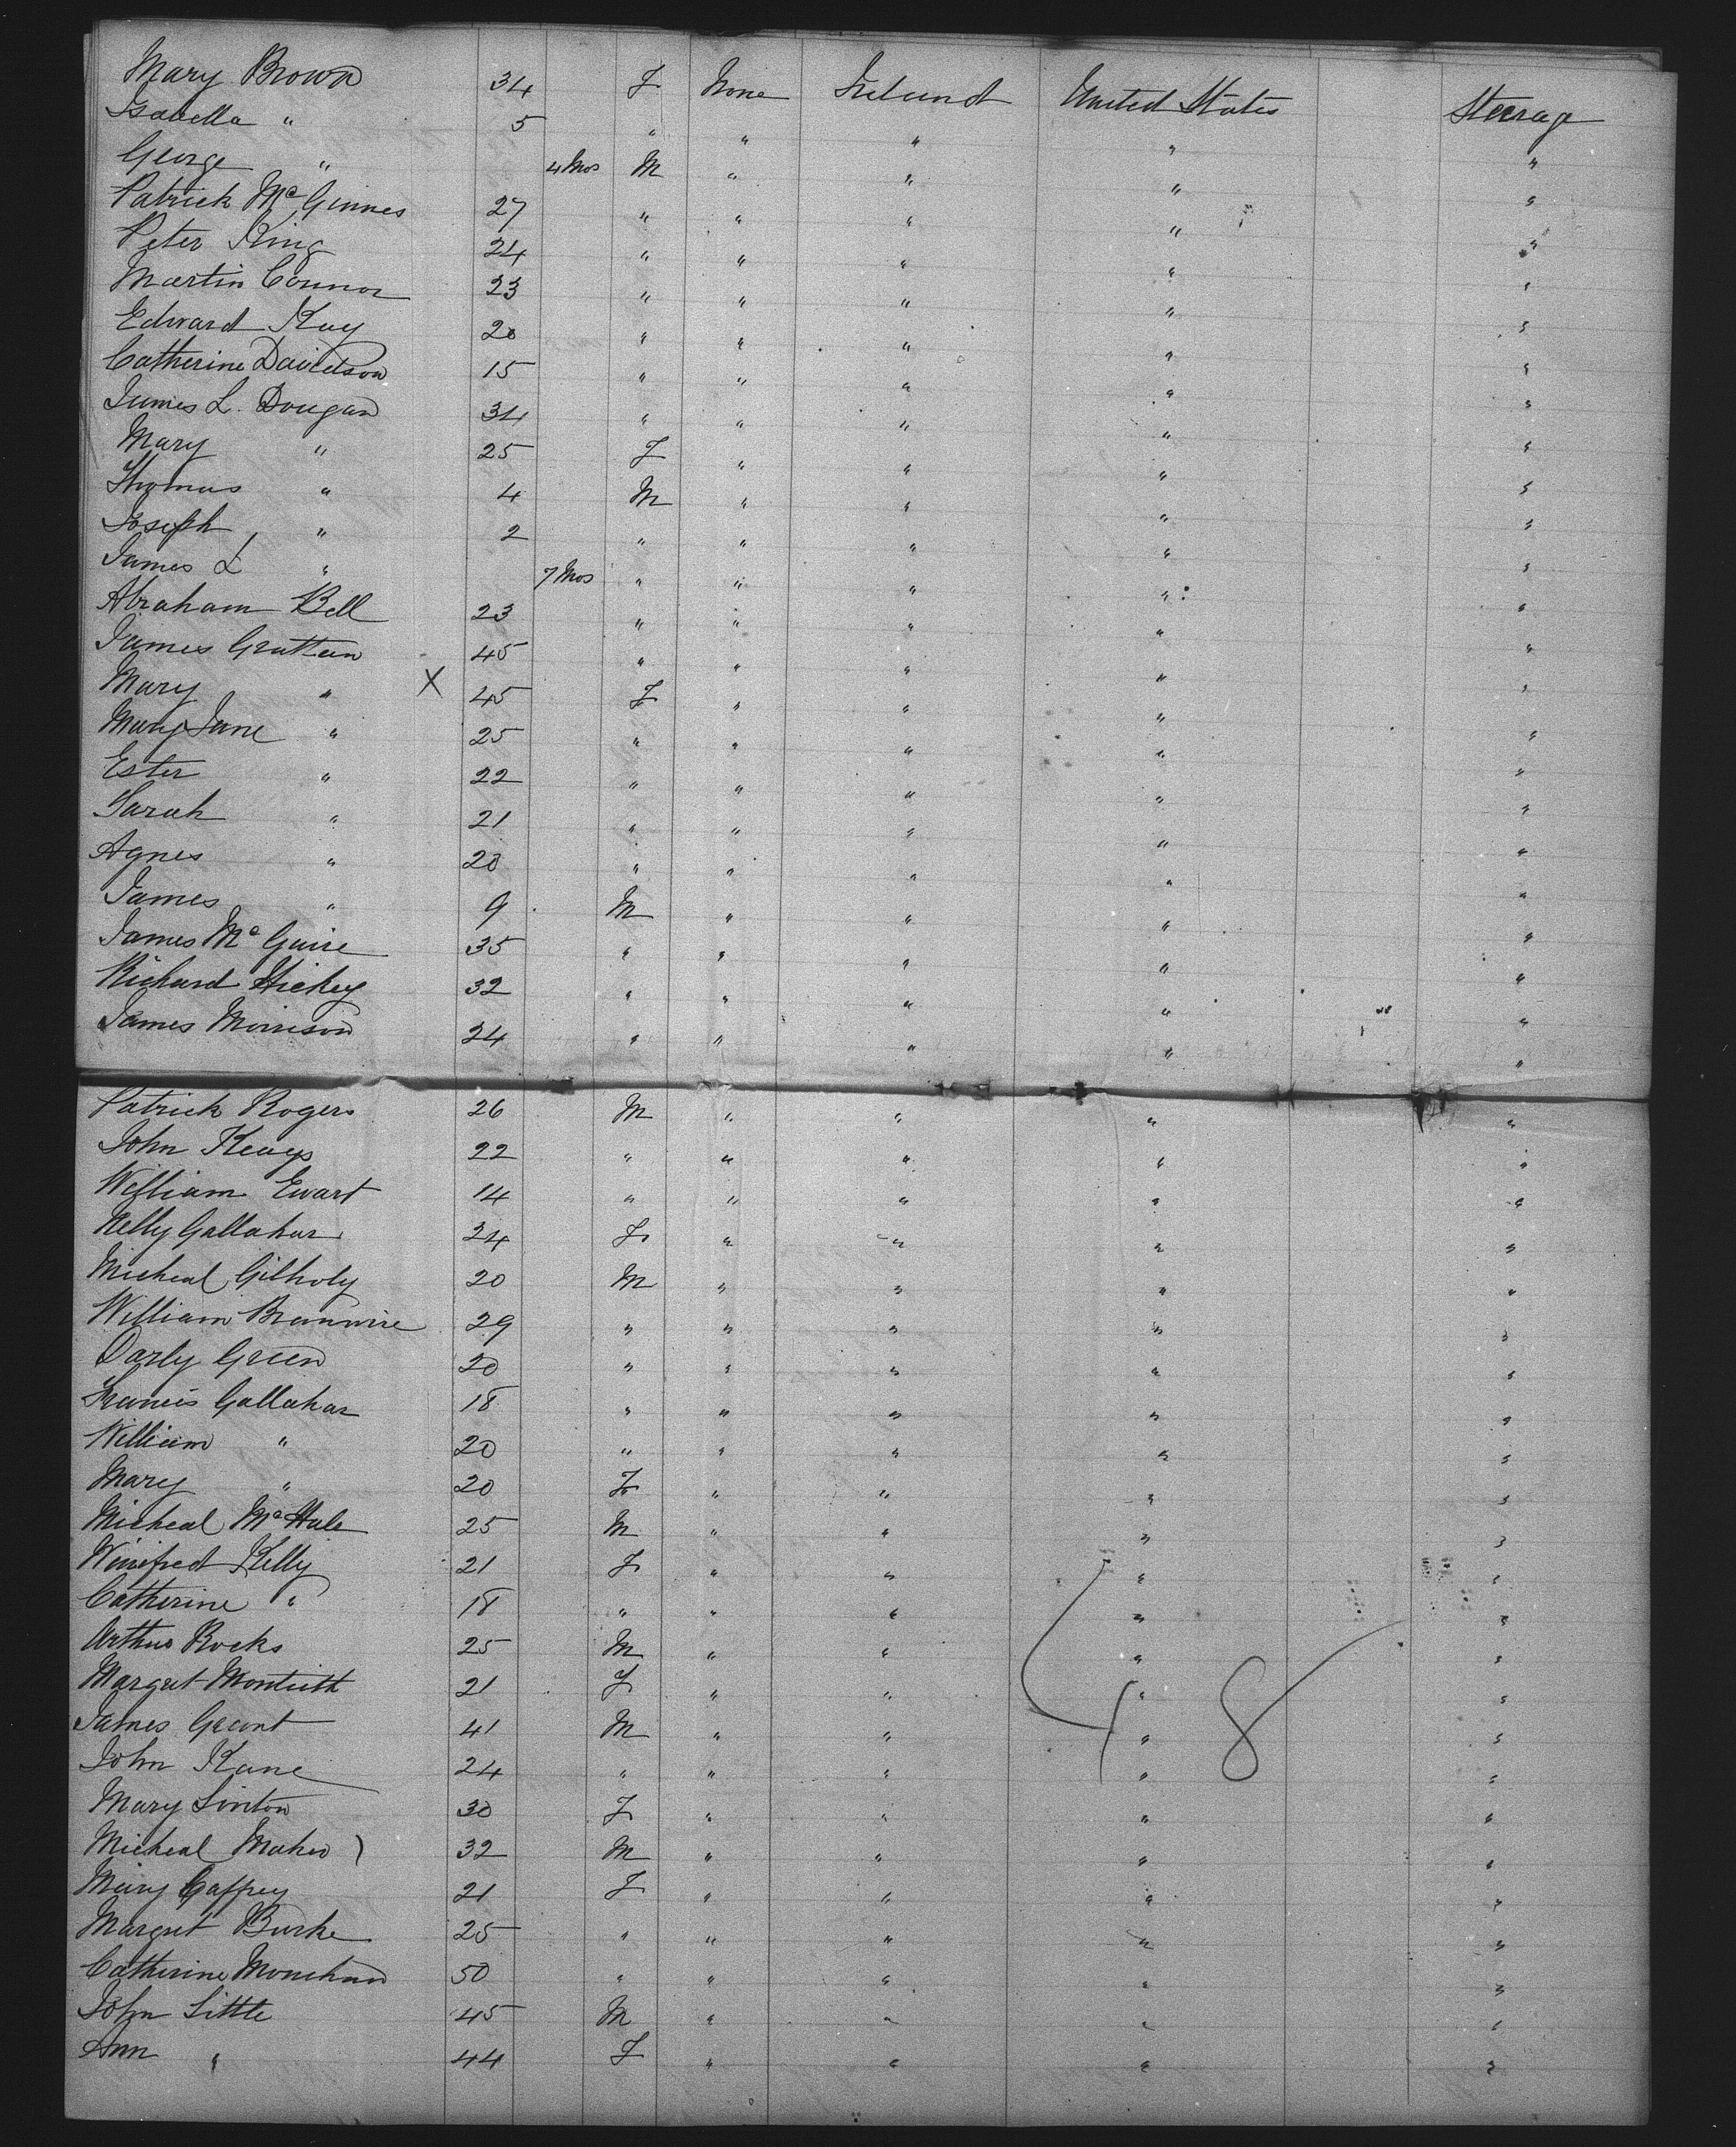 Mary Brown 34 F None Ireland United States Steerage
Isabella " 5 " " " " "
George " 4 Mos M " " " "
Patrick McGinnes 27 " " " " "
Peter King 24 " " " " "
Martin Connor 23 " " " " "
Edward Kay 20 " " " " "
Catherine Davidson 15 " " " " "
James L. Dougan 34 " " " " "
Mary " 25 F " " " "
Thomas " 4 M " " " "
Joseph " 2 " " " " "
James L " 7 Mos " " " " "
Abraham Bell 23 " " " " "
James Grattan 45 " " " " "
Mary " X 45 F " " " "
Mary Jane " 25 " " " " "
Ester " 22 " " " " "
Sarah " 21 " " " " "
Agnes " 20 " " " " "
James " 9 M " " " "
James McGuire 35 " " " " "
Richard Hickey 32 " " " " "
James Morrison 24 " " " " "
Patrick Rogers 26 M " " " "
John Keays 22 " " " " "
William Ewart 14 " " " " "
Nelly Gallahar 24 F " " " "
Micheal Gilholy 20 M " " " "
William 29 " " " " "
Darly Green 20 " " " " "
Francis Gallahar 18 " " " " "
William " 20 " " " " "
Mary " 20 F " " " "
Micheal McHale 25 M " " " "
Winifred Kelly 21 F " " " "
Catherine " 18 " " " " "
Arthur Rocks 25 M " " " "
Margret Montieth 21 F " " " "
James Grant 41 M " " " "
John Kane 24 " " " " "
48
Mary Linton 30 F " " " "
Micheal Maher 32 M " " " "
Mary Gaffrey 21 F " " " "
Margret Burke 25 " " " " "
Catherine Monehan 50 " " " " "
John Little 45 M " " " "
Ann " 44 F " " " "